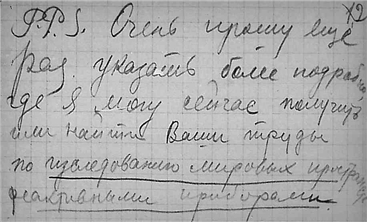 х2
P.P.S. Очень прошу ещё
раз указать более подробно
где я могу сейчас получить
или найти Ваши труды
по изследованию мировых пространств
реактивными приборами.